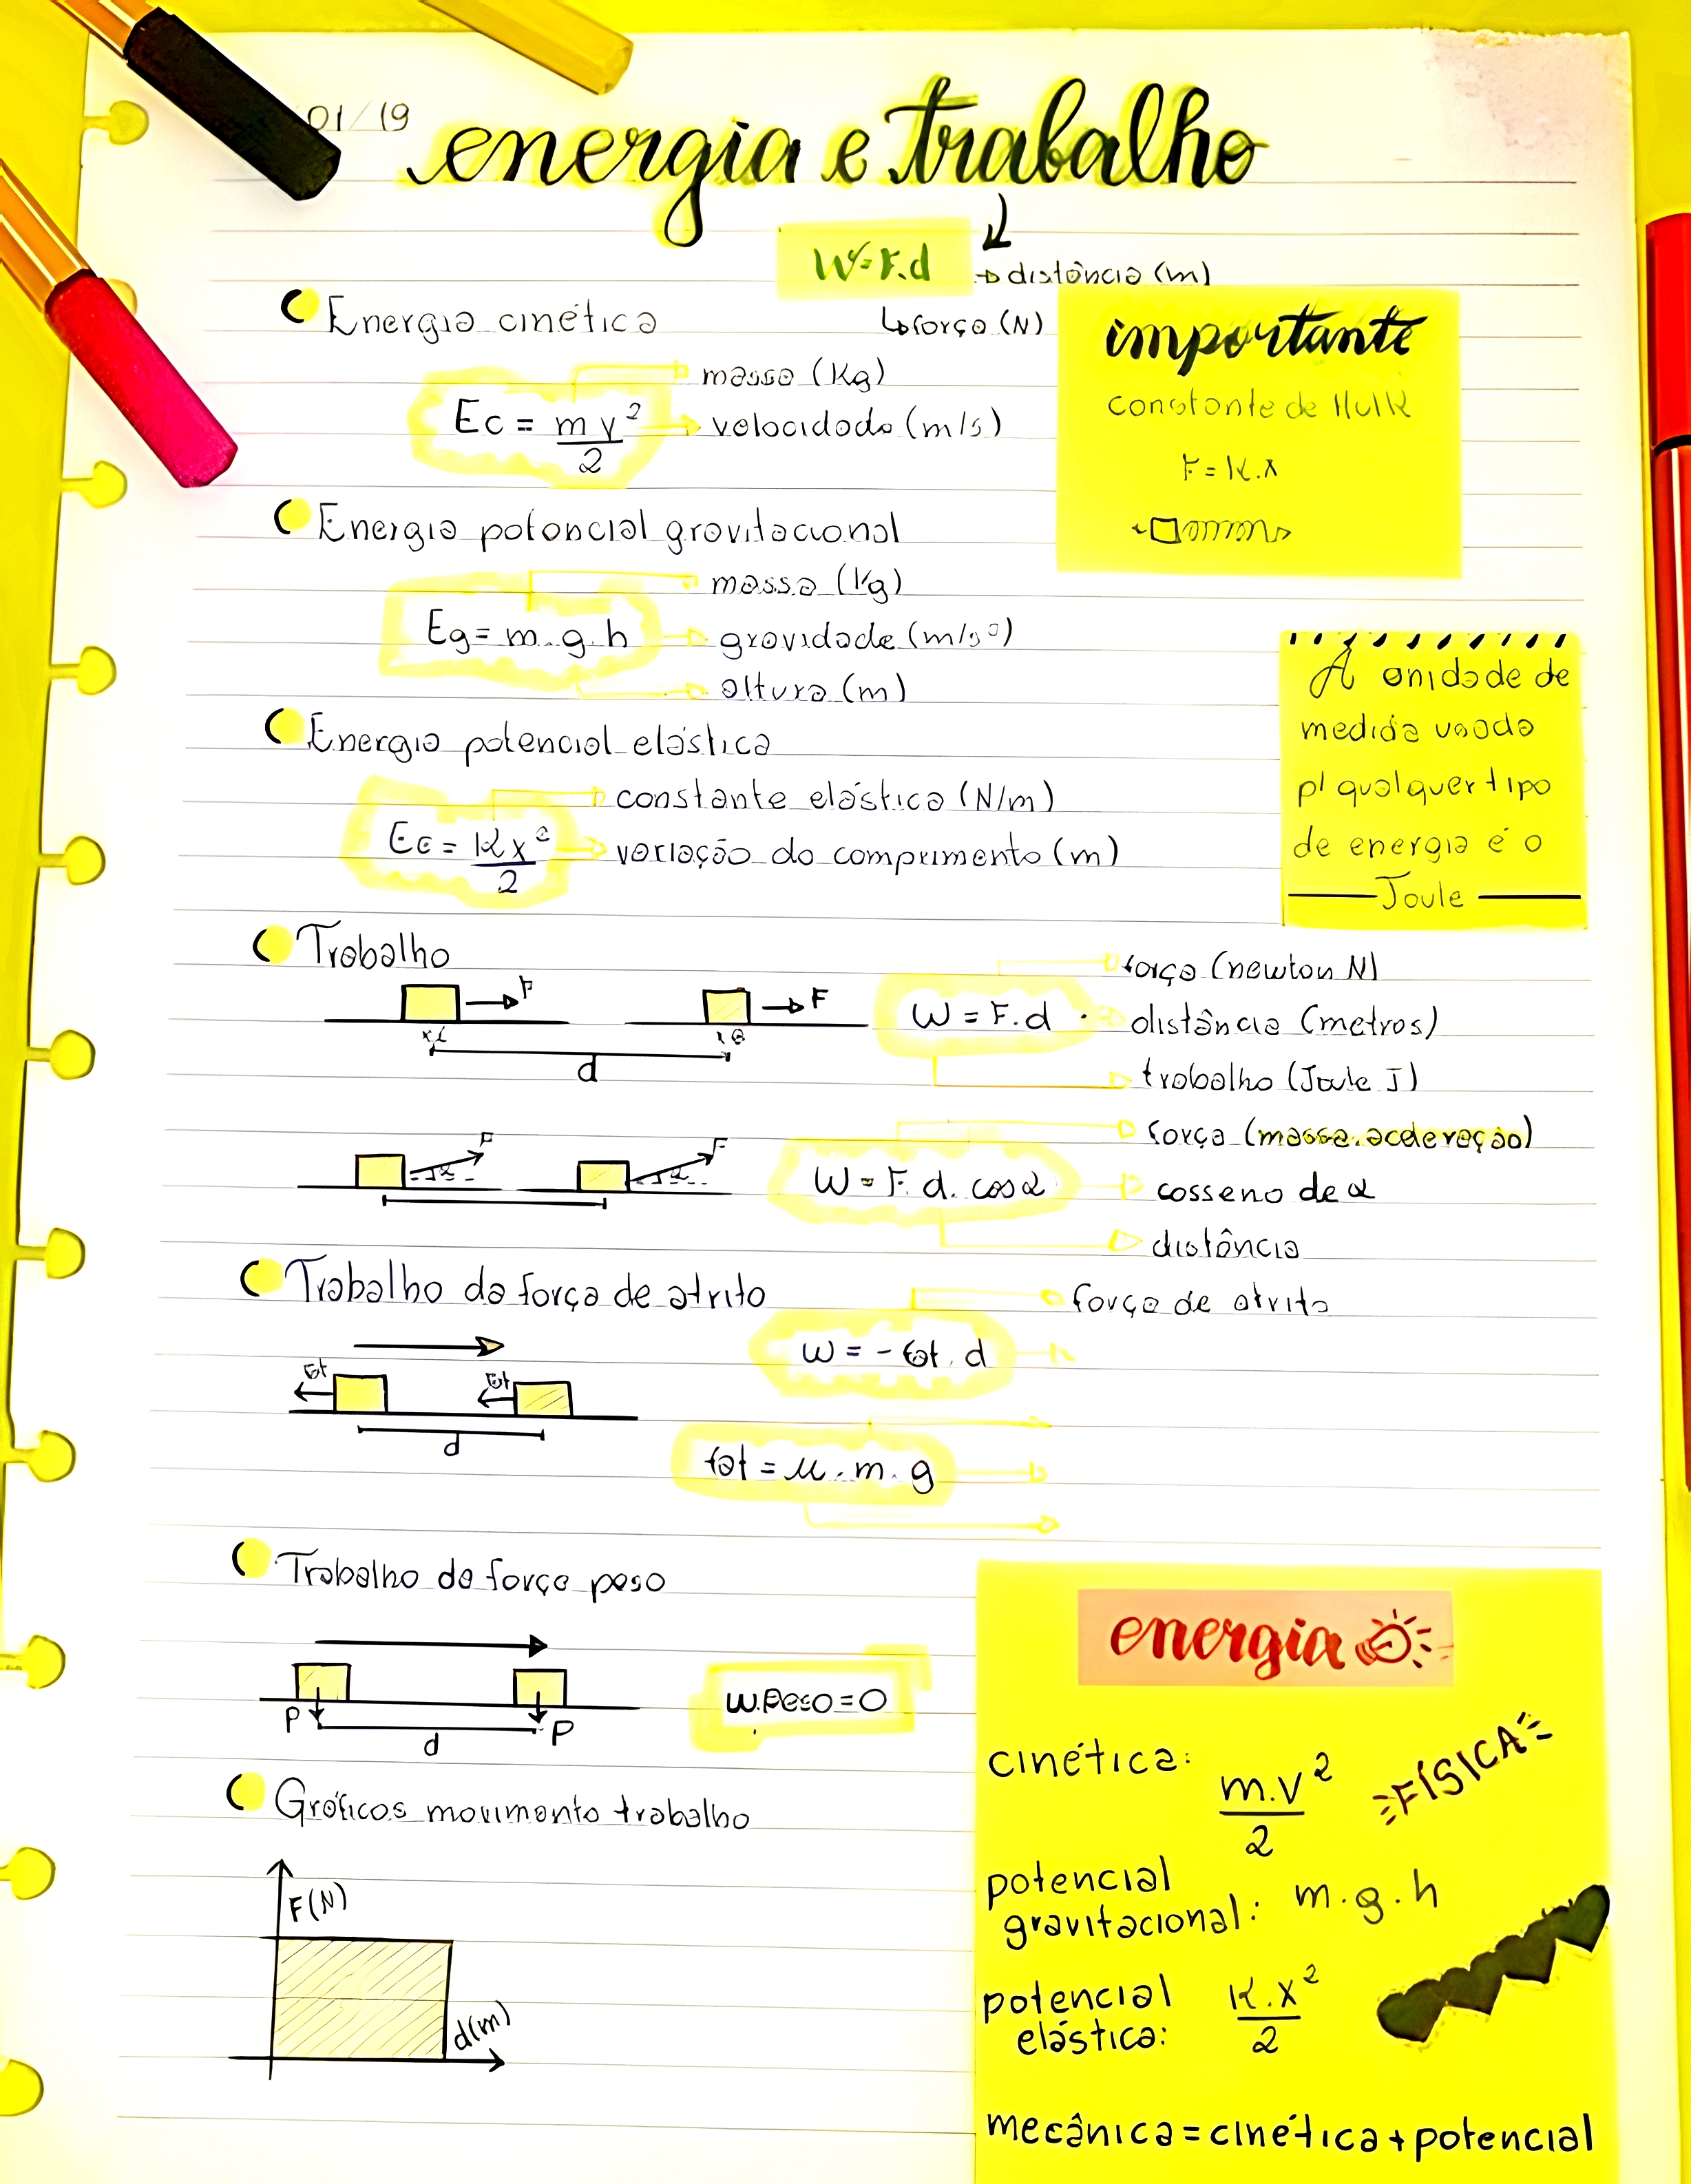 01/19
energia e trabalho
W=F.d → distância (m)
↳ força (N)
Energia cinética
massa (Kg)
Ec = mv²/2
velocidade (m/s)
importante
constante de Hulk
F = K.x
Energia potencial gravitacional
massa (Kg)
Eg = m.g.h
gravidade (m/s²)
altura (m)
A unidade de
medida usada
p/ qualquer tipo
de energia é o
Joule
Energia potencial elástica
constante elástica (N/m)
Ee = Kx²/2
variação do comprimento (m)
Trabalho
força (newton N)
F F
W = F.d
distância (metros)
d
trabalho (Joule J)
força (massa.aceleração)
F F
α α
W = F.d.cosα
cosseno de α
distância
Trabalho da força de atrito
força de atrito
W = - fat.d
fat fat
d
fat = μ.m.g
Trabalho da força peso
P P
d
W.Peso=0
Gráficos movimento trabalho
F(N)
d(m)
energia
FÍSICA
cinética: m.v²/2
potencial
gravitacional: m.g.h
potencial
elástica: K.x²/2
mecânica = cinética + potencial